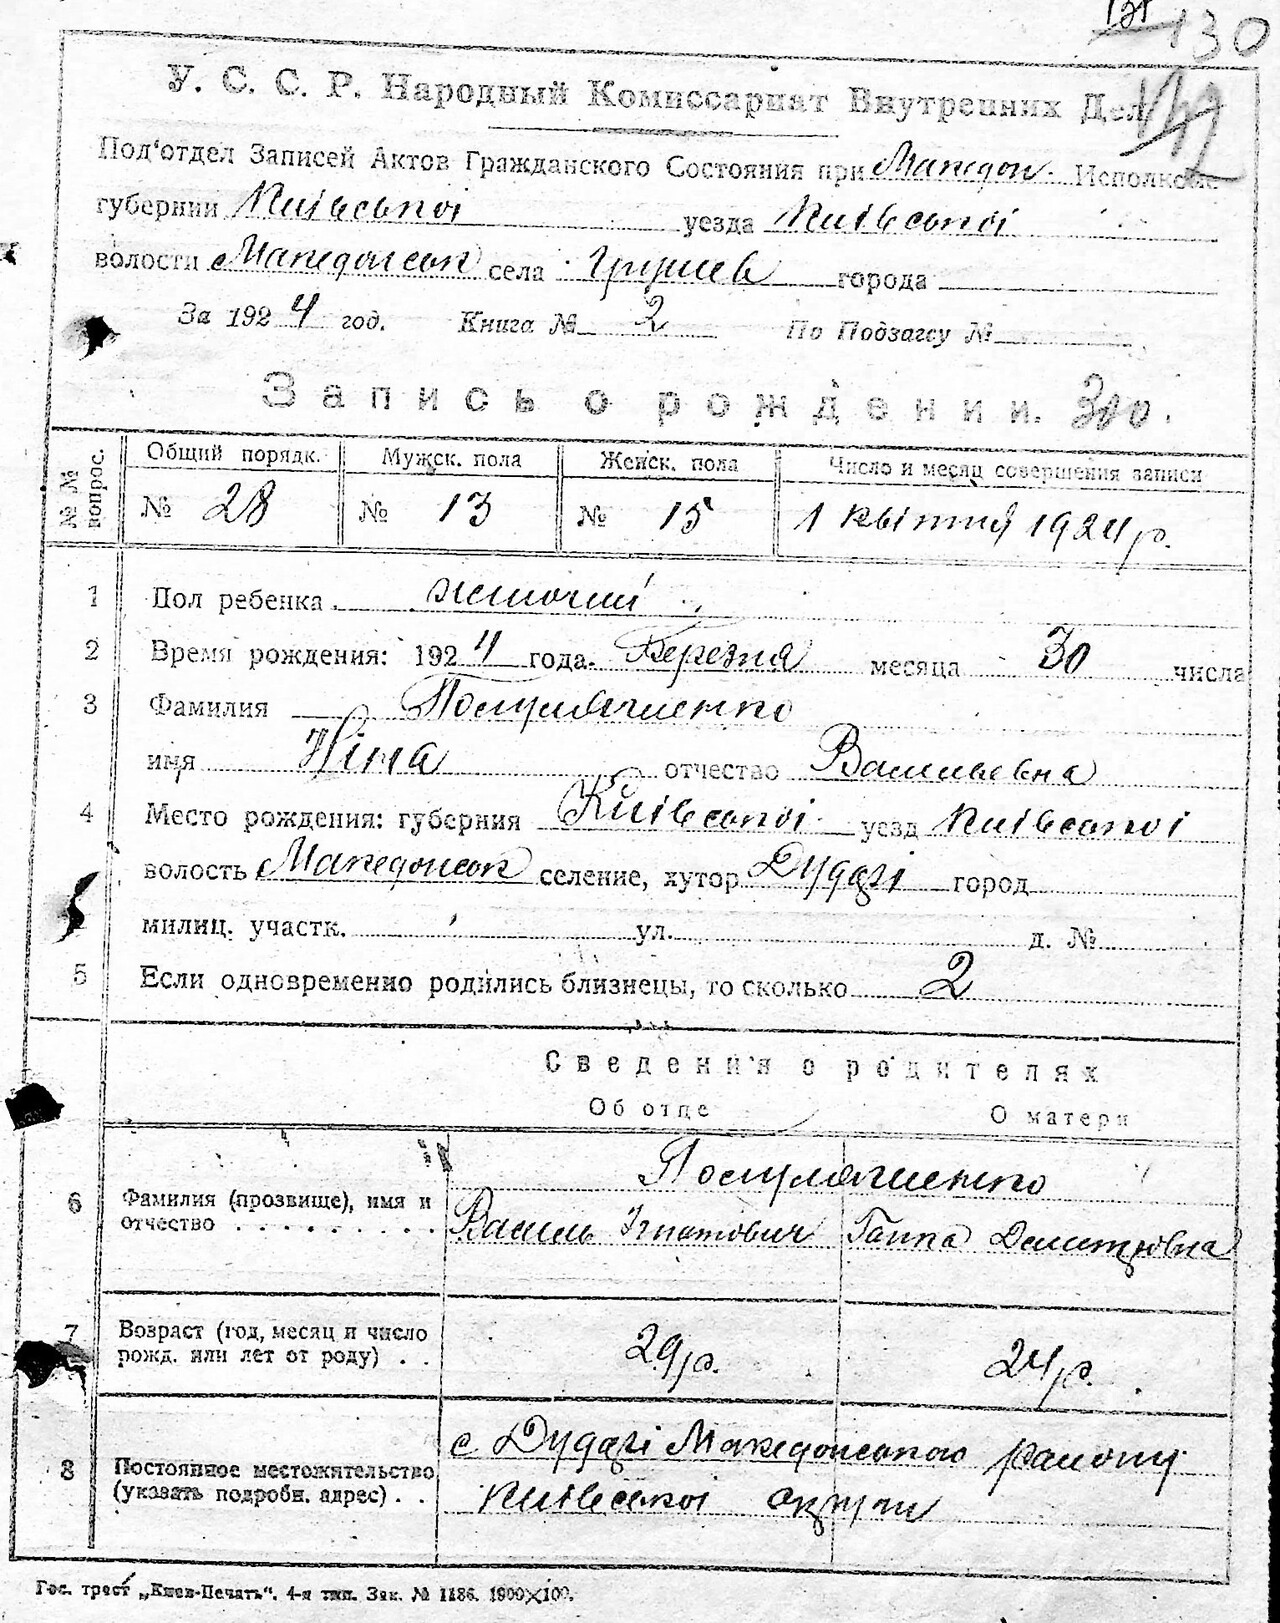 130
У. С. С. Р. Народный Комиссариат Внутренних Дел
Под'отдел Записей Актов Гражданского Состояния при Македон. Исполкоме
губернии Київської уезда Київської
волости Македонськ села Грушев города
За 1924 год. Книга № 2 По Подзагсу №
Запись о рождении.
№№ вопрос. Общий порядк. Мужск. пола Женск. пола Число и месяц совершения записи
№ 28 № 13 № 15 1 квітня 1924 р.
1 Пол ребенка жіночий
2 Время рождения: 1924 года. Березня месяца 30 числа
3 Фамилия
имя Ніна отчество Васильевна
4 Место рождения: губерния Київської уезд Київської
волость Македонськ селение, хутор Дударі город
милиц. участк. ул. д. №
5 Если одновременно родились близнецы, то сколько 2
Сведения о родителях
Об отце О матери
6 Фамилия (прозвище), имя и
отчество . . . . . . . . . Василь Ігнатович Ганна Дмитровна
7 Возраст (год, месяц и число
рожд. или лет от роду) . . 29 р. 24 р.
8 Постоянное местожительство
(указать подробн. адрес) . .
с Дударі Македонського району
Київської округи
Гос. трест „Киев-Печать“. 4-я тип. Зак. № 1186. 1900×100.